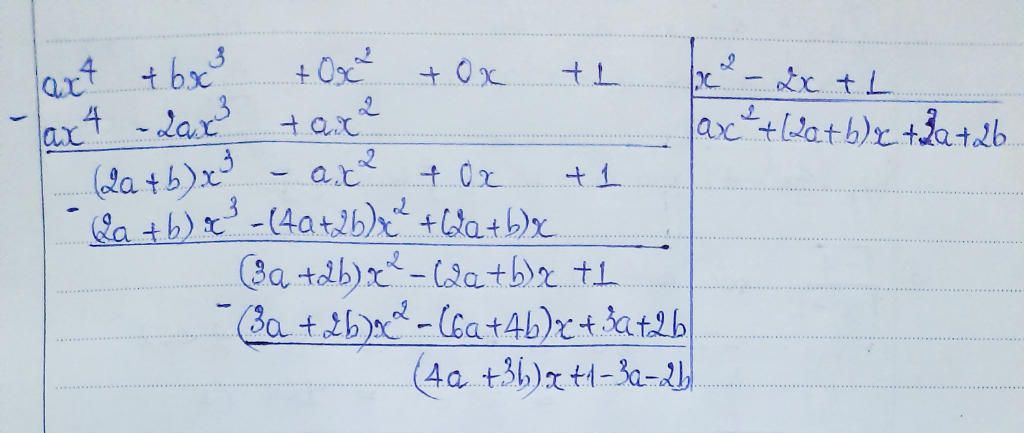 ax⁴ + bx³ + 0x² + 0x + 1 | x² - 2x + 1
- ax⁴ - 2ax³ + ax² | ax² + (2a+b)x + 3a + 2b
(2a+b)x³ - ax² + 0x + 1
- (2a+b)x³ - (4a+2b)x² + (2a+b)x
(3a+2b)x² - (2a+b)x + 1
- (3a+2b)x² - (6a+4b)x + 3a+2b
(4a+3b)x + 1 - 3a - 2b